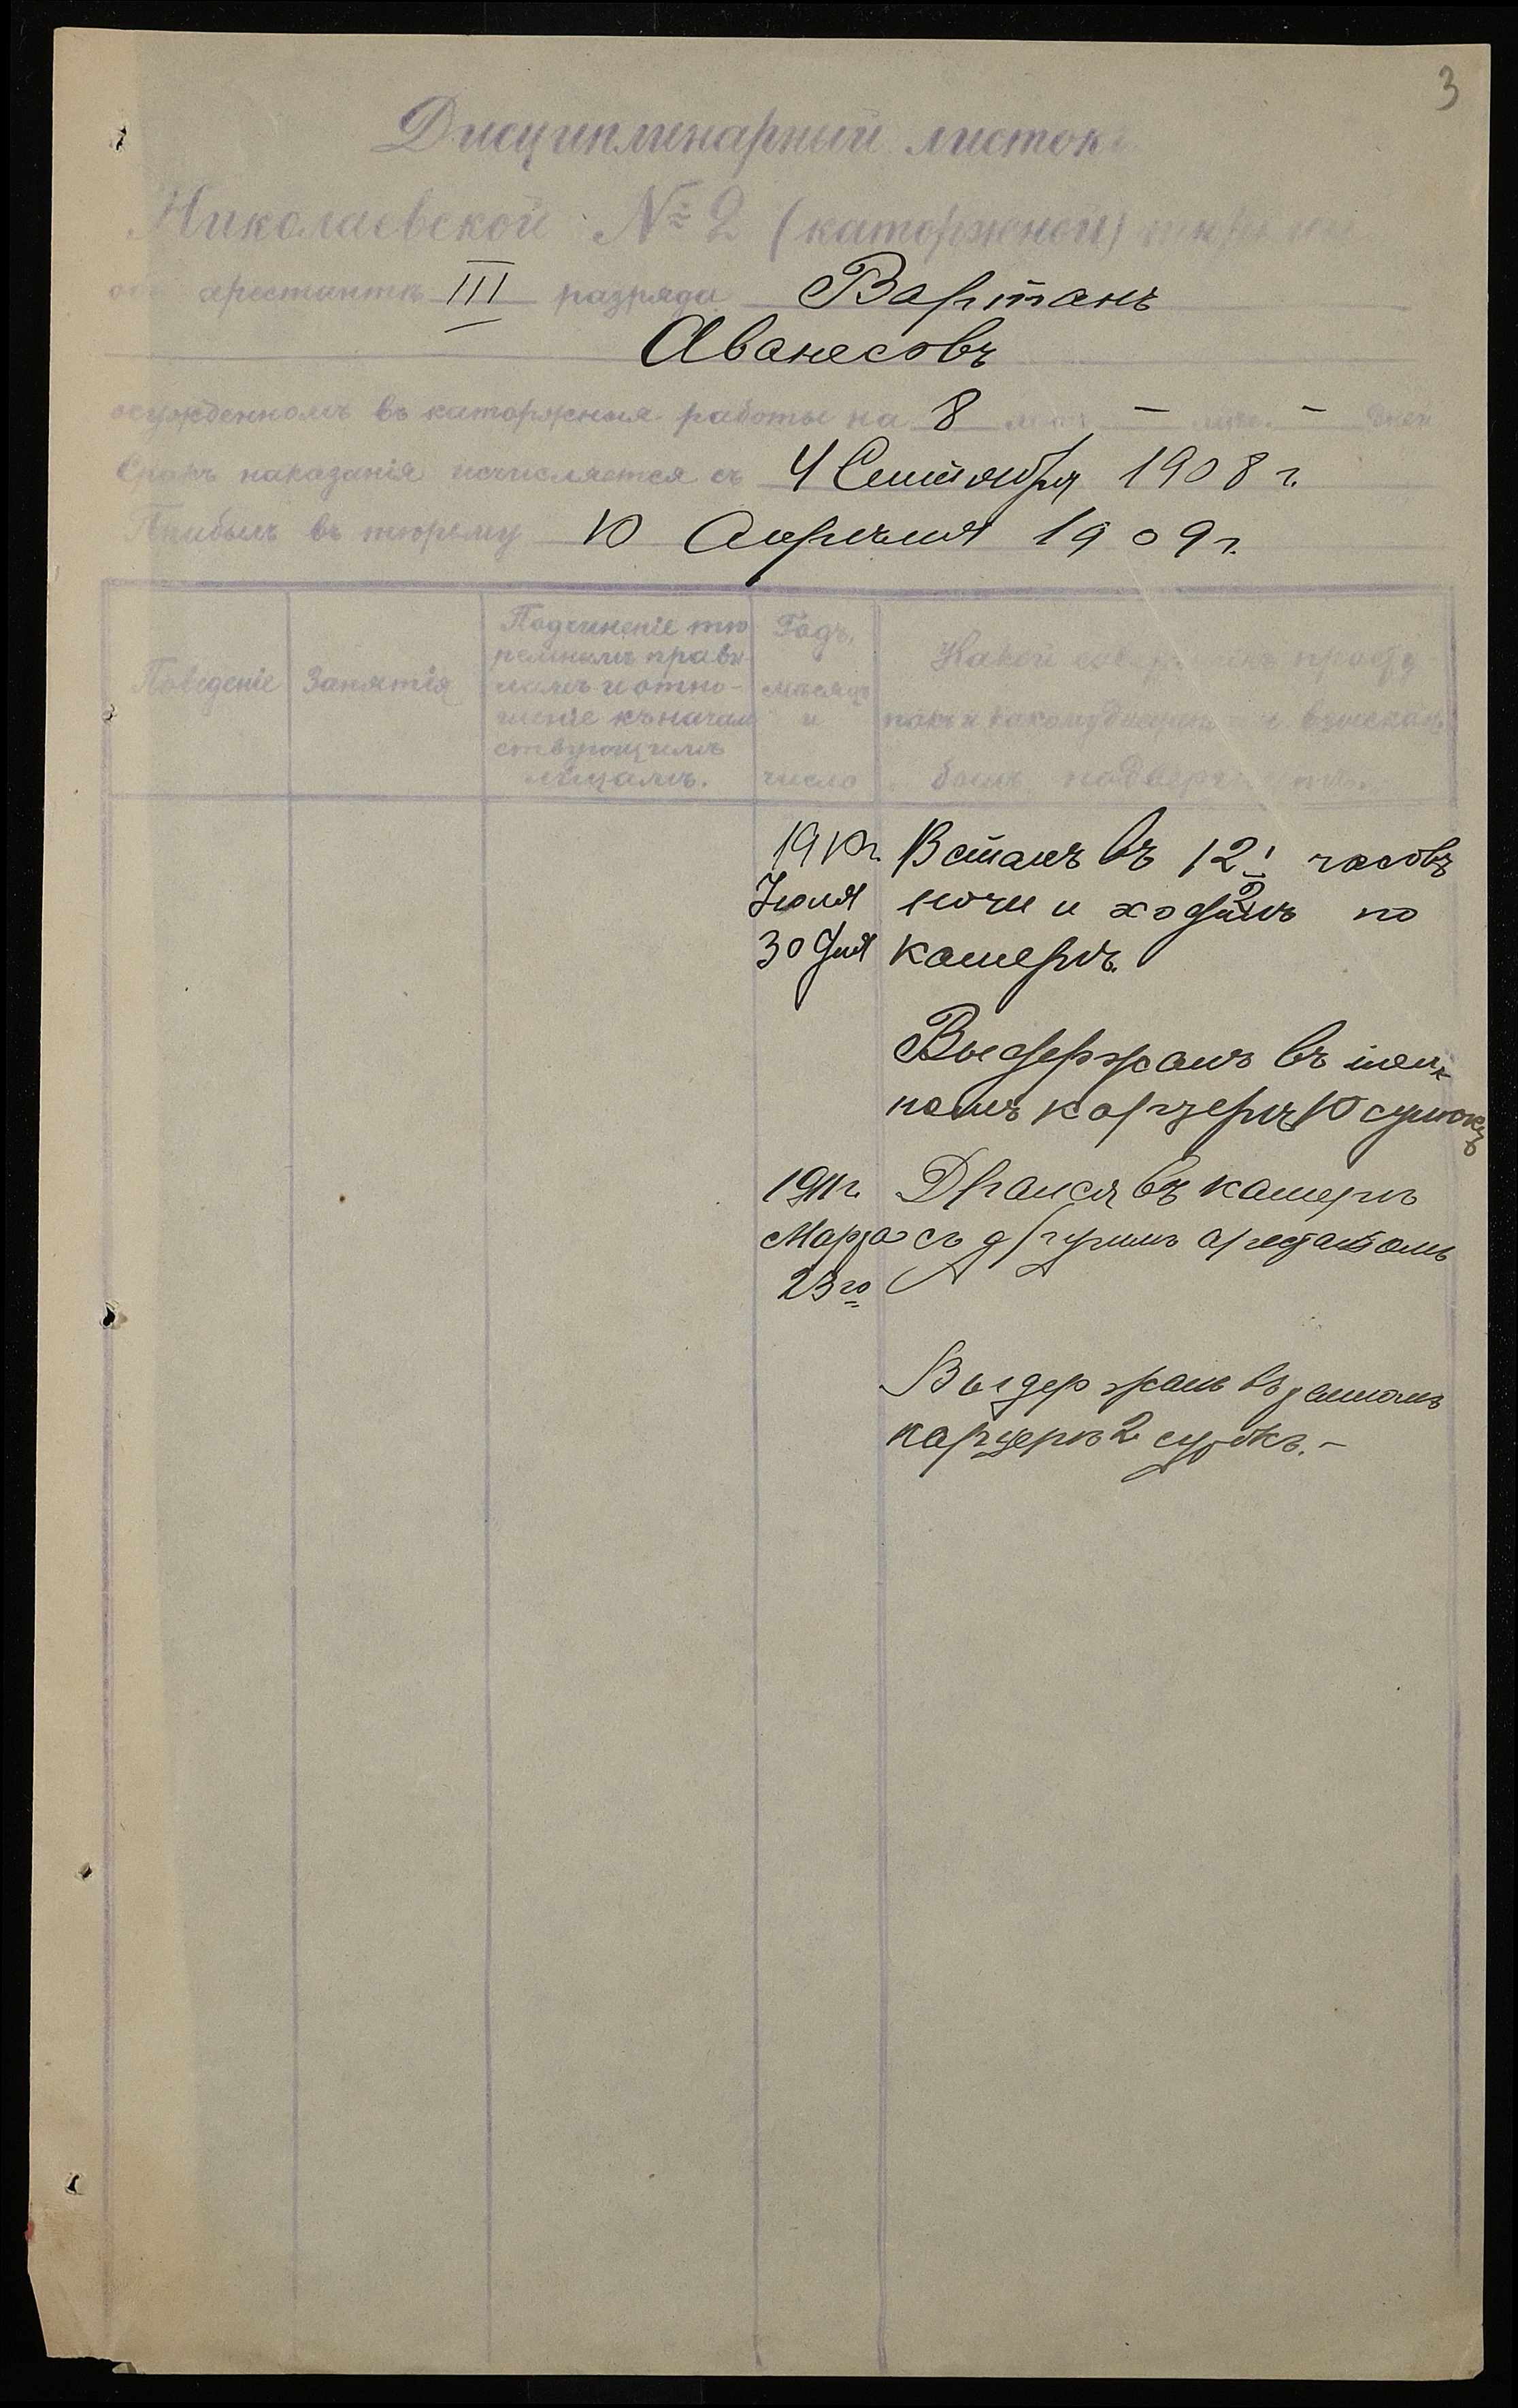 3
Дисциплинарный листокъ
Николаевской № 2 (каторжной) тюрьмы
объ арестантѣ III разряда Вартанъ
Аванесовъ
осужденномъ въ каторжныя работы на 8 лѣтъ — мѣс. — дней
Срокъ наказанія исчисляется съ 4 Сентября 1908 г.
Прибылъ въ тюрьму 10 Апрѣля 1909 г.
Поведеніе
Занятія
Подчиненіе тю
ремнымъ прави
ламъ и отно-
шеніе къ началь
ствующимъ
лицамъ.
Годъ,
мѣсяцъ
и
число
Какой совершилъ просту
покъ и какому дисципл. взыскан.
былъ подвергнутъ.
1910 г. Всталъ въ 12 1/2 часовъ
Іюля ночи и ходилъ по
30 дня камерѣ.
Выдержанъ въ тем-
номъ карцерѣ 10 сутокъ
1911 г. Дрался въ камерѣ
Марта съ другимъ арестатомъ
23го
Выдержанъ въ темномъ
карцерѣ 2 сутокъ. –